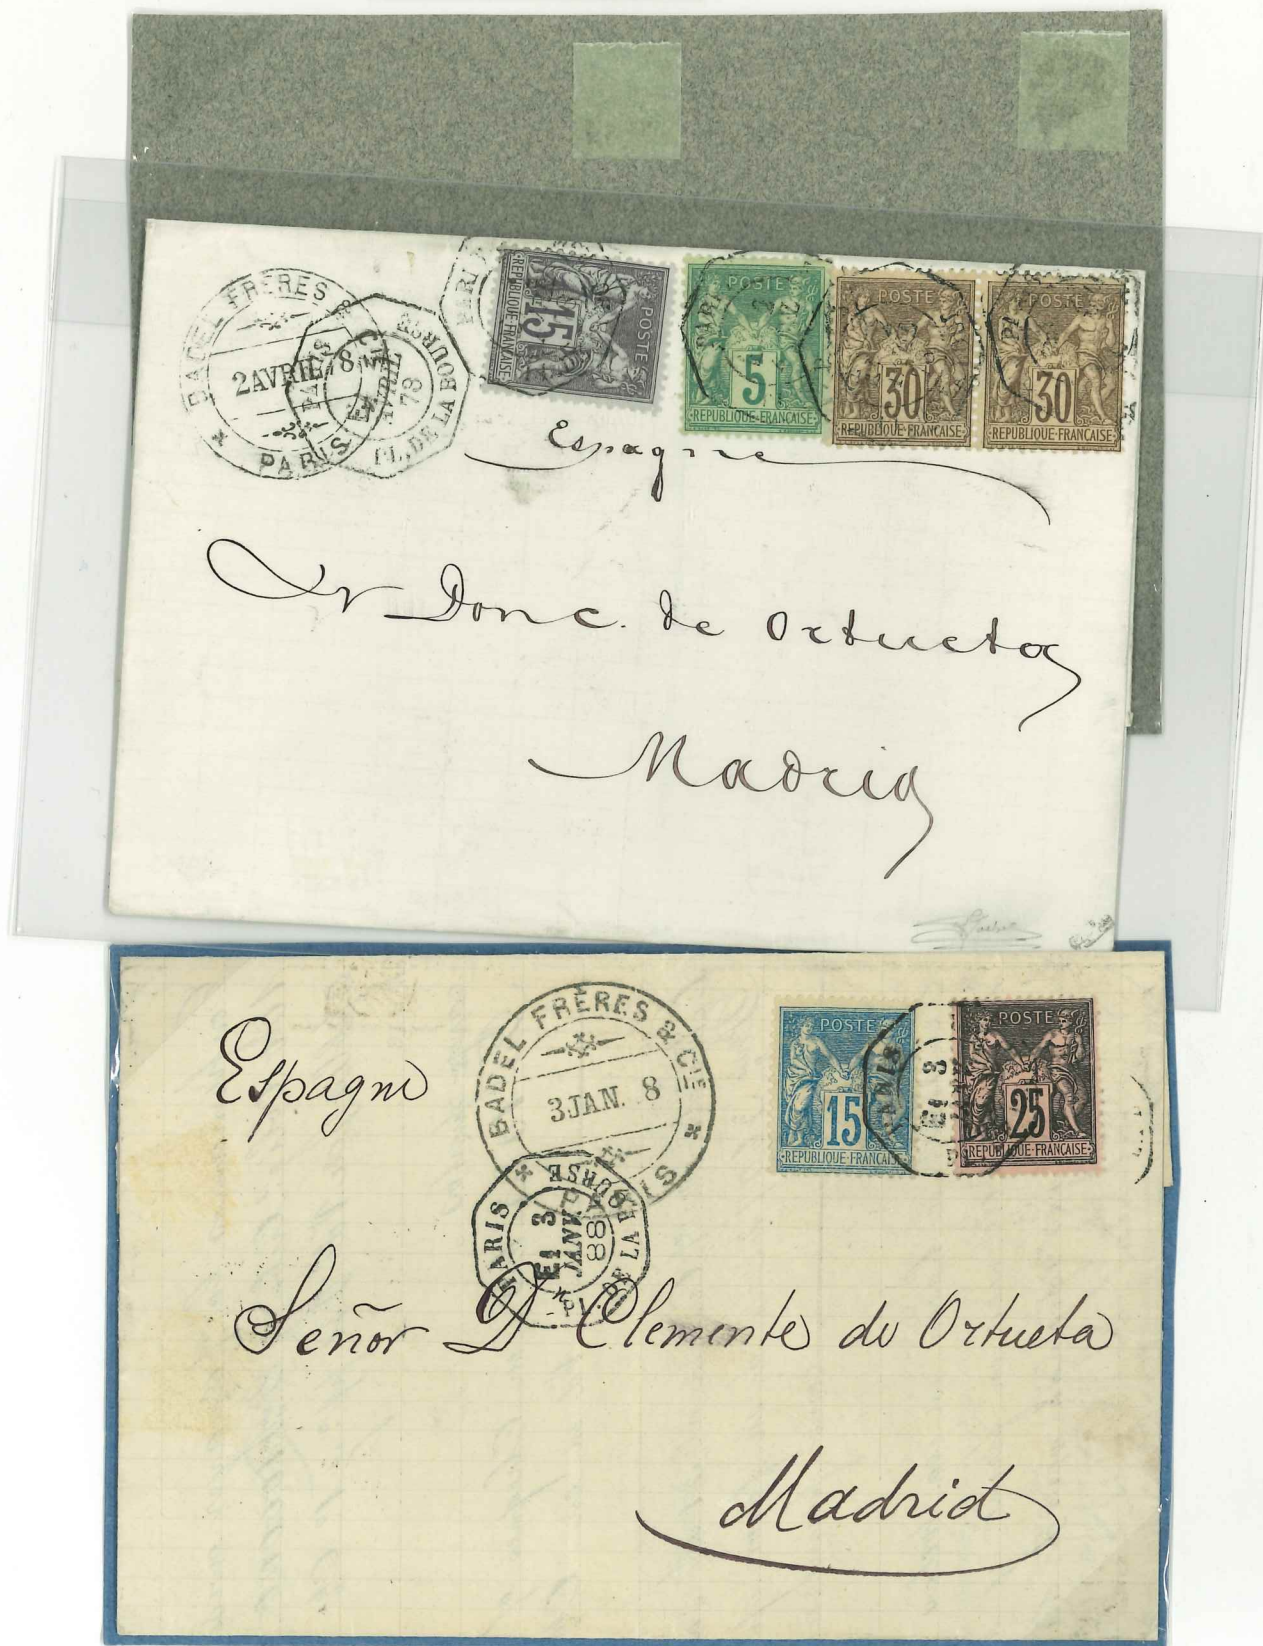 BADEL FRÈRES & CIE
2 AVRIL 78
PARIS
PARIS
PL. DE LA BOURSE
AVRIL
78
PARI
POSTE
15
RÉPUBLIQUE FRANÇAISE
PARI
POSTE
5
REPUBLIQUE FRANÇAISE
POSTE
30
REPUBLIQUE FRANÇAISE
POSTE
30
REPUBLIQUE FRANÇAISE
Espagne
Sr Don C. de Ortueta
Madrid
Espagne
BADEL FRÈRES & CIE
3 JAN. 8
PARIS
PARIS
PL. DE LA BOURSE
E1
3
JANV.
88
POSTE
15
REPUBLIQUE FRANÇAISE
PARIS
E1
3
POSTE
25
REPUBLIQUE FRANÇAISE
Señor D Clemente de Ortueta
Madrid